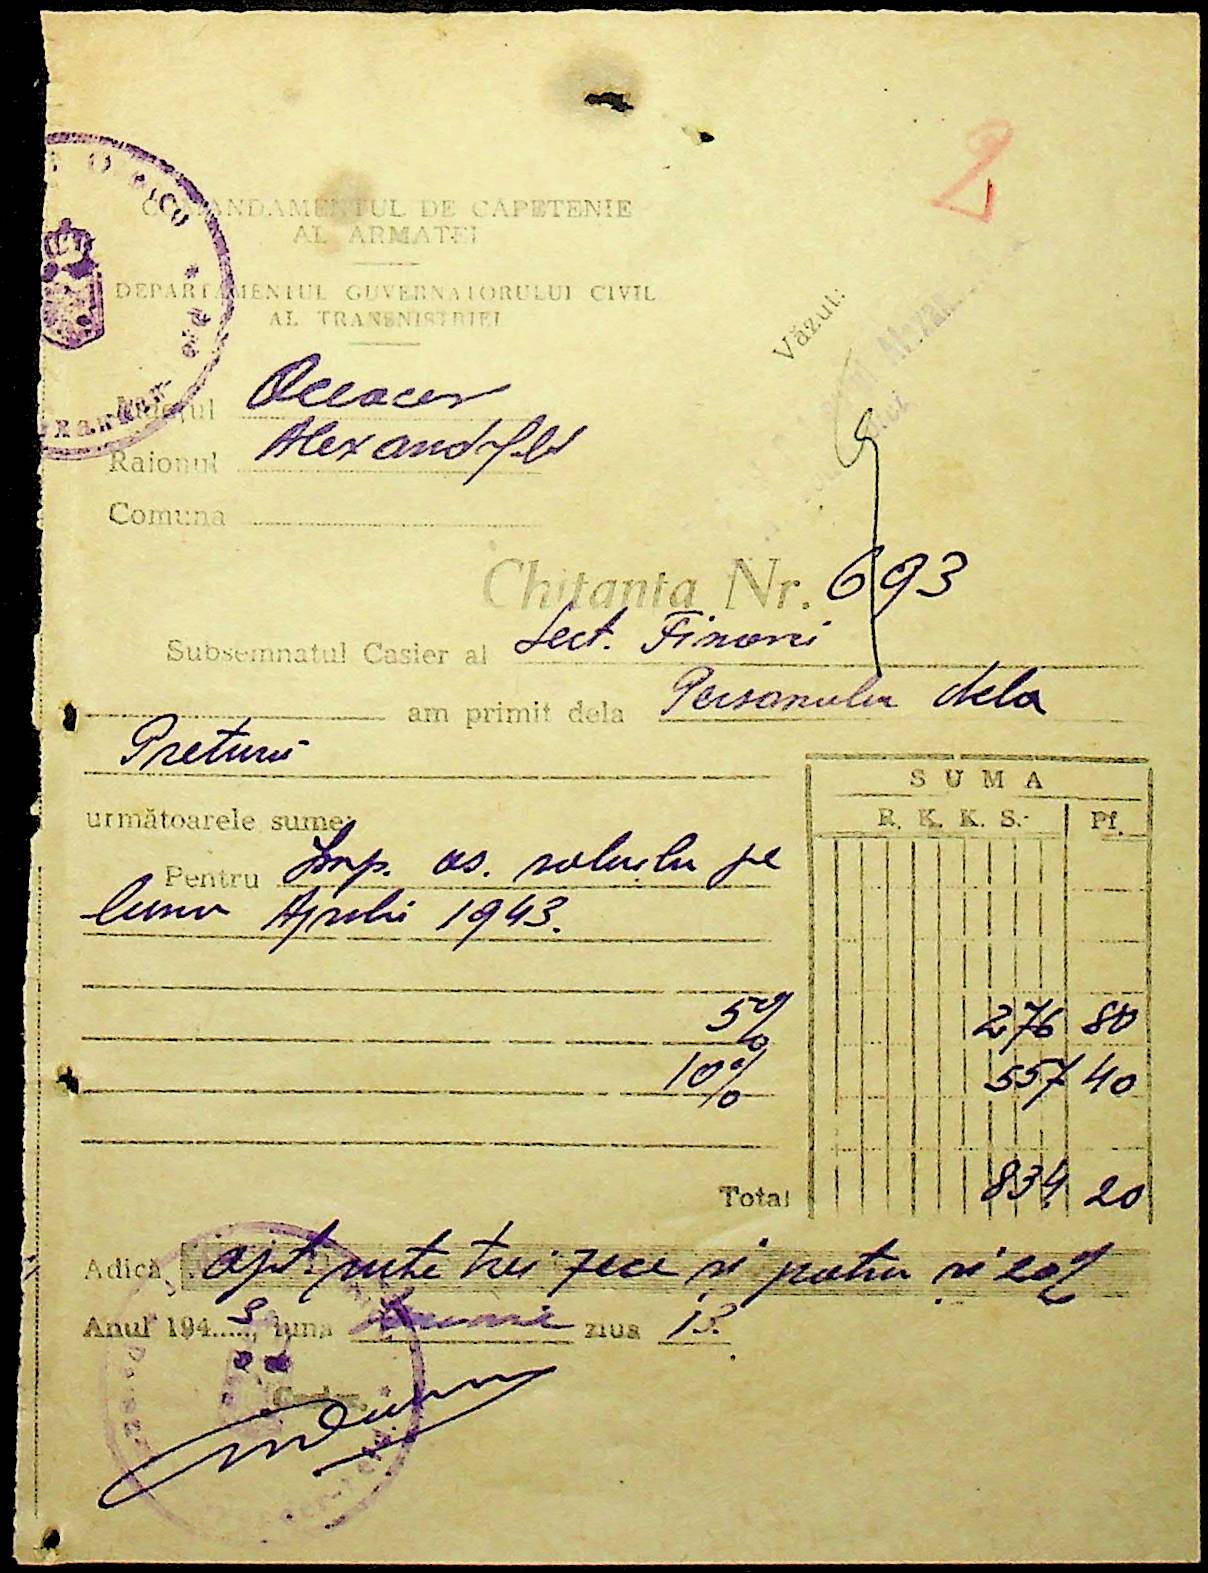 2
COMANDAMENTUL DE CAPETENIE
AL ARMATEI
DEPARTAMENTUL GUVERNATORULUI CIVIL
AL TRANSNISTRIEI
Văzut:
Județul Oceacov
Raionul Alexandfeld
Comuna
Chitanta Nr. 693
Subsemnatul Casier al Sect. Financi
am primit dela Personalu dela
Preturii
SUMA
următoarele sume:
R. K. K. S. Pf.
Pentru Imp. as. salariilor pe
luna Aprilie 1943.
5% 276 80
10% 557 40
Total 834. 20
Adică opt sute trei zece si patru si 20%
Anul 1943, luna Iunie ziua 13.